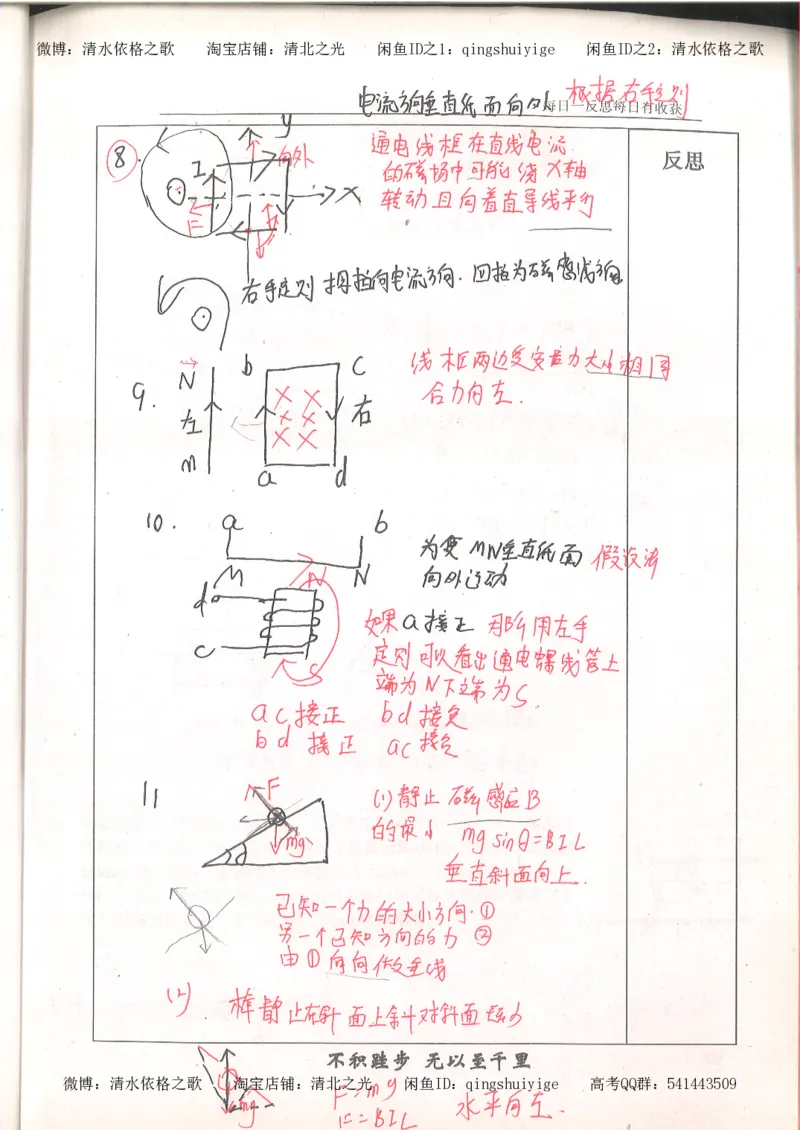 微博：清水依格之歌 淘宝店铺：清北之光 闲鱼ID之1：qingshuiyige 闲鱼ID之2：清水依格之歌
电流方向垂直纸面向外 根据右手定则
每日一反思每日有收获
反思
8.
y
I
向外
X
F
通电线框在直线电流
的磁场中可能绕X轴
转动且向着直导线平行
右手定则 拇指指向电流方向.四指为磁感线方向
9.
N
左
M
b
c
右
a
d
线框两边受安培力大小相同
合力向左.
10.
a
b
M
N
N
d
c
S
为要MN垂直纸面 假设法
向外运动
如果a接正 那么用左手
定则可以看出通电螺线管上
端为N下端为S.
ac接正 bd接负
bd接正 ac接负
11
F
mg
α
(1)静止 磁感应B
的最小 mg sinθ=BIL
垂直斜面向上.
已知一个力的大小方向.①
另一个已知方向的力 ②
由①向向做垂线
(2)
棒静止在斜面上斜对斜面无力
不积跬步 无以至千里
微博：清水依格之歌 淘宝店铺：清北之光 闲鱼ID：qingshuiyige 高考QQ群：541443509
mg
F=mg
F=BIL
水平向左.